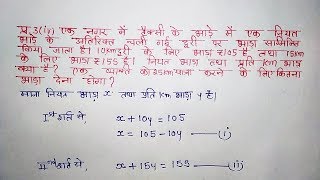 प्र.3(iv) एक नगर में टैक्सी के भाड़े में एक नियत
भाड़े के अतिरिक्त चली गई दूरी पर भाड़ा सम्मिलित
किया जाता है। 10km दूरी के लिए भाड़ा ₹105 है तथा 15km
के लिए भाड़ा ₹155 है। नियत भाड़ा तथा प्रति km भाड़ा
क्या है? एक व्यक्ति को 25km यात्रा करने के लिए कितना
भाड़ा देना होगा?
माना नियत भाड़ा x तथा प्रति km भाड़ा y है।
Ist शर्त से, x + 10y = 105
x = 105 - 10y —(i)
IInd शर्त से, x + 15y = 155 —(ii)